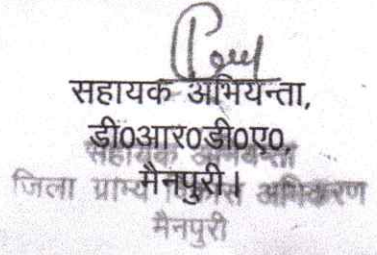 सहायक अभियन्ता,
डी०आर०डी०ए०,
सहायक अभियन्ता
मैनपुरी।
जिला ग्राम्य विकास अभिकरण
मैनपुरी